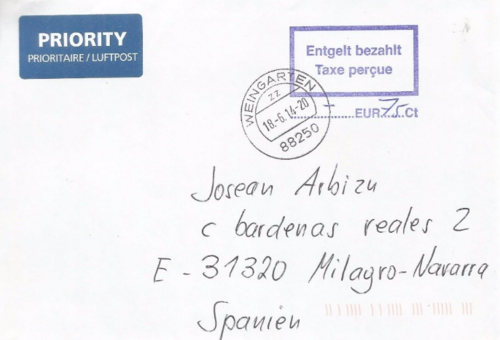 PRIORITY
PRIORITAIRE / LUFTPOST
Entgelt bezahlt
Taxe perçue
WEINGARTEN
zz
18.-6.14-20
88250
- EUR 75 Ct
Josean Arbizu
c bardenas reales 2
E - 31320 Milagro-Navarra
Spanien